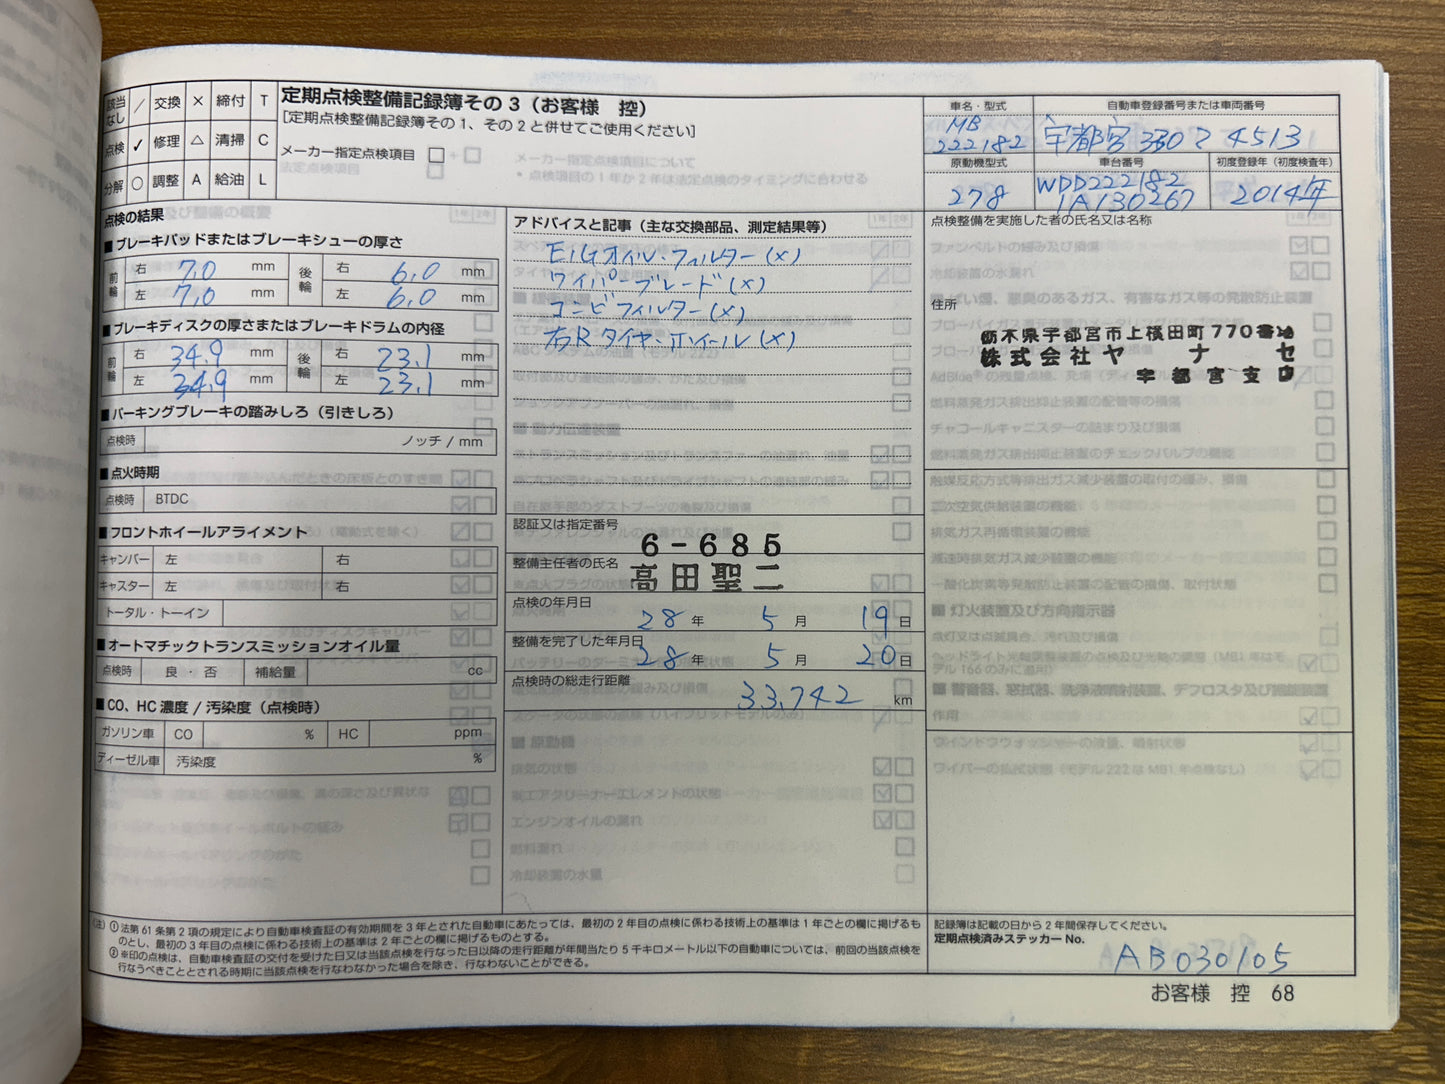 該当なし ／ 交換 × 締付 T
点検 ✓ 修理 △ 清掃 C
分解 ○ 調整 A 給油 L
定期点検整備記録簿その３（お客様　控）
[定期点検整備記録簿その１、その２と併せてご使用ください]
メーカー指定点検項目 □
車名・型式
MB
222182
自動車登録番号または車両番号
宇都宮 330 て 4513
原動機型式
278
車台番号
WDD222182
1A130267
初度登録年（初度検査年）
2014年
点検の結果
■ ブレーキパッドまたはブレーキシューの厚さ
前輪 右 7.0 mm 後輪 右 6.0 mm
左 7.0 mm 左 6.0 mm
■ ブレーキディスクの厚さまたはブレーキドラムの内径
前輪 右 34.9 mm 後輪 右 23.1 mm
左 34.9 mm 左 23.1 mm
■ パーキングブレーキの踏みしろ（引きしろ）
点検時 ノッチ / mm
■ 点火時期
点検時 BTDC
■ フロントホイールアライメント
キャンバー 左 右
キャスター 左 右
トータル・トーイン
■ オートマチックトランスミッションオイル量
点検時 良・否 補給量 cc
■ CO、HC 濃度 / 汚染度（点検時）
ガソリン車 CO % HC ppm
ディーゼル車 汚染度 %
アドバイスと記事（主な交換部品、測定結果等）
E/Gオイル・フィルター(×)
ワイパーブレード(×)
コンビフィルター(×)
右Rタイヤ・ホイール(×)
認証又は指定番号
6-685
整備主任者の氏名
高田聖二
点検の年月日
28 年 5 月 19 日
整備を完了した年月日
28 年 5 月 20 日
点検時の総走行距離
33,742 km
点検整備を実施した者の氏名又は名称
住所
栃木県宇都宮市上横田町770番地
株式会社ヤナセ
宇都宮支店
（注）① 法第 61 条第 2 項の規定により自動車検査証の有効期間を 3 年とされた自動車にあたっては、最初の 2 年目の点検に係わる技術上の基準は 1 年ごとの欄に掲げるも
のとし、最初の 3 年目の点検に係わる技術上の基準は 2 年ごとの欄に掲げるものとする。
② ※印の点検は、自動車検査証の交付を受けた日又は当該点検を行なった日以降の走行距離が年間当たり 5 千キロメートル以下の自動車については、前回の当該点検を
行なうべきこととされる時期に当該点検を行なわなかった場合を除き、行なわないことができる。
記録簿は記載の日から 2 年間保存してください。
定期点検済みステッカー No.
AB030105
お客様　控　68